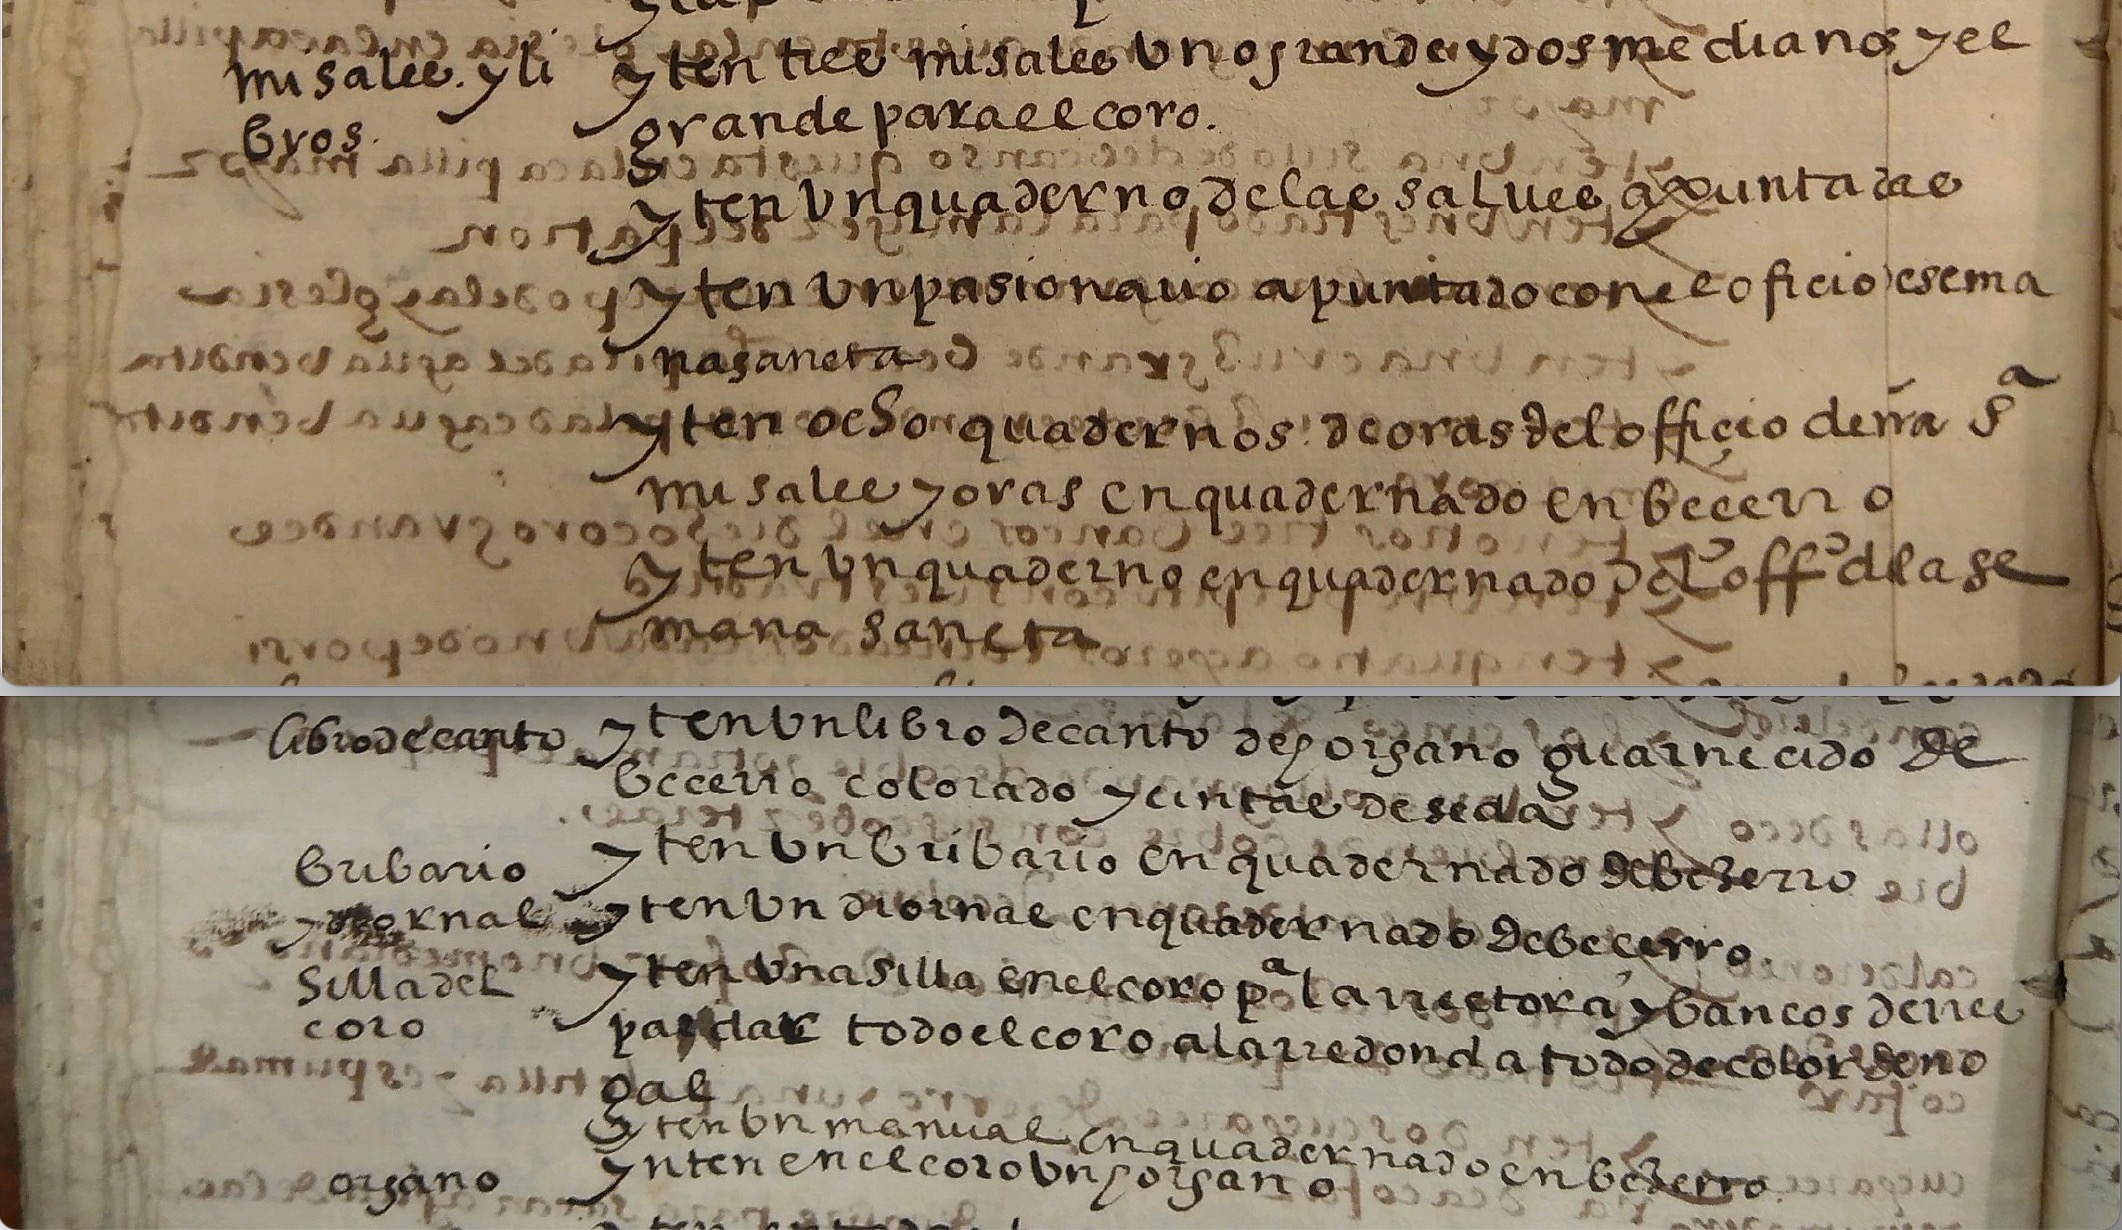 misales. y li
bros.
yten tres misales vno grande y dos medianos y el
grande para el coro.
yten vn quaderno de las salues apuntadas
yten vn pasionario apuntado con el oficio de sema
na sancta
yten ocho quadernos de oras del officio de nra sª
misales y oras enquadernado en becerro
yten vn quaderno enquadernado del offº de la se
mana sancta
libro de canto
yten vn libro de canto de organo guarnecido de
becerro colorado y cintas de seda
bribario
yten vn bribario enquadernado de bezerro
y diornal
yten vn diornal enquadernado de becerro.
Silla del
coro
yten vna silla en el coro pª la rrectora y bancos de rres
paldar todo el coro a la rredonda todo de color de no
gal
yten vn manual enquadernado en bezerro.
organo
ynten en el coro vn organo